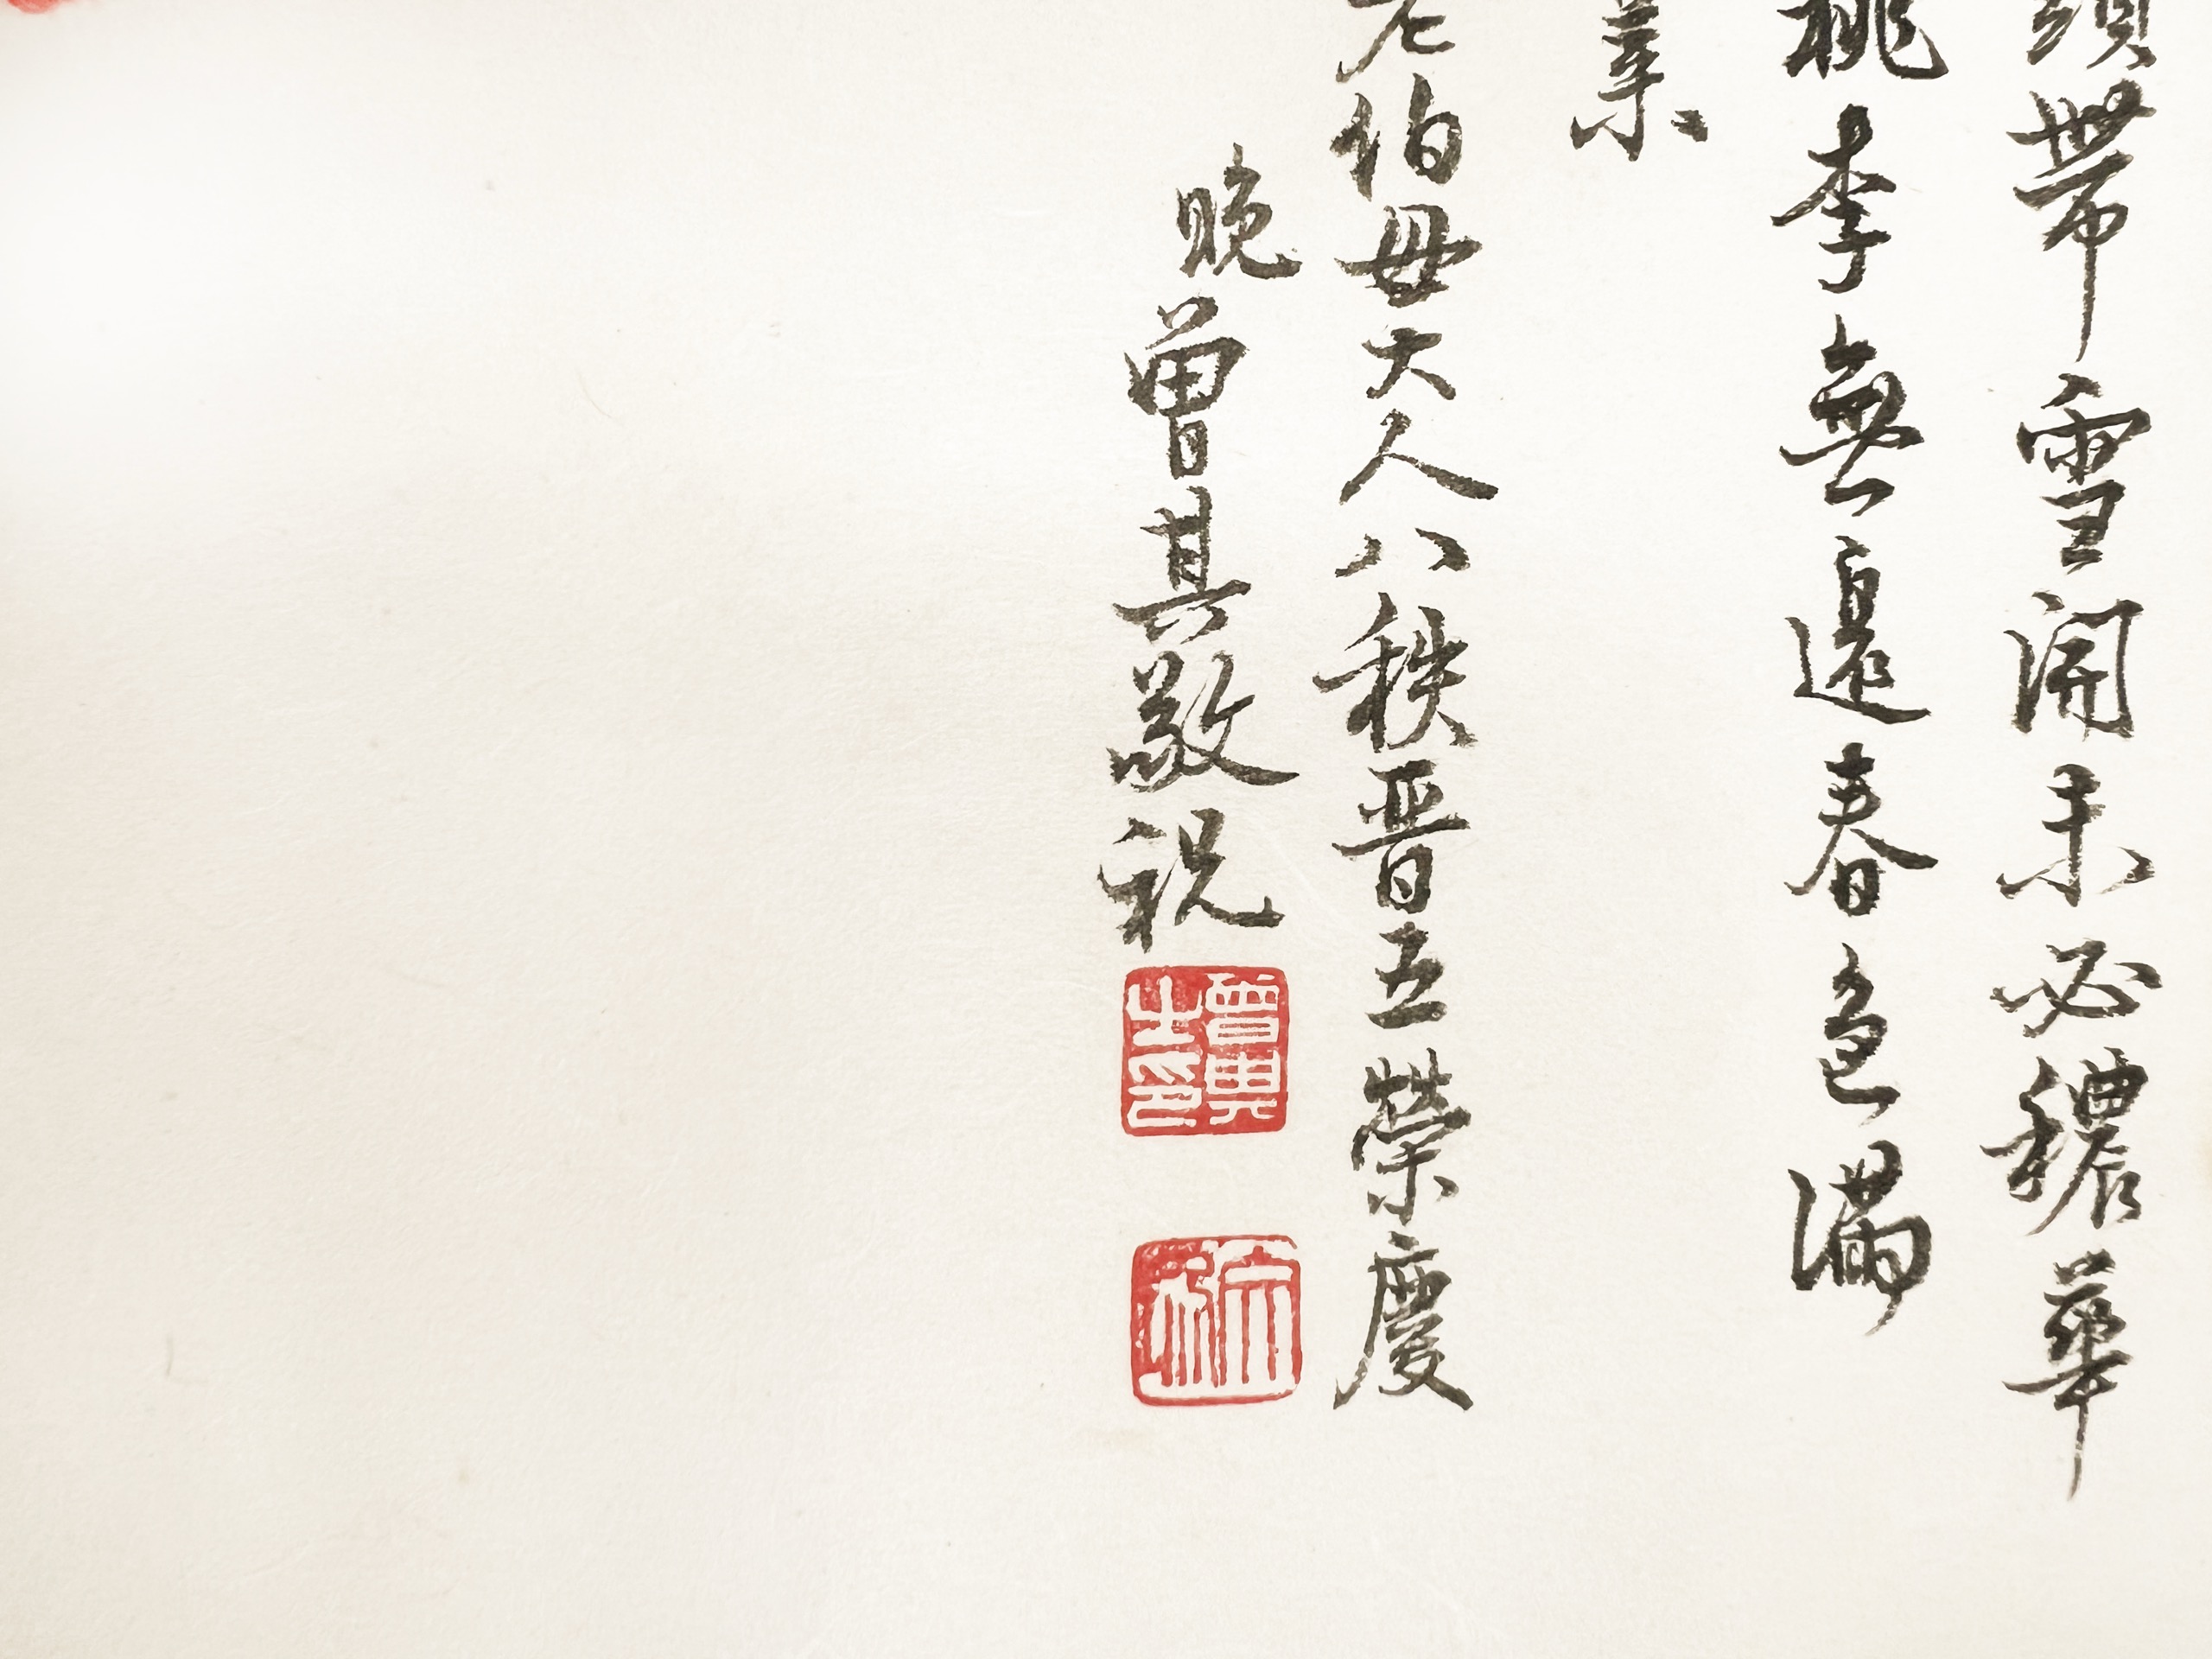 頭帶雪開未必穠華
桃李無邊春色滿
業
老伯母大人八秩晋五榮慶
晚曾其敬祝
曾其之印